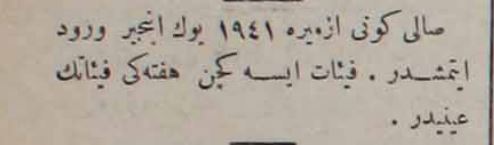 صالی كونی ازمیره ١٩٤١ يوك انجیر ورود
ایتمشـدر . فیئات ایسـه كچن هفته‌كی فیئاتك
عینیدر .